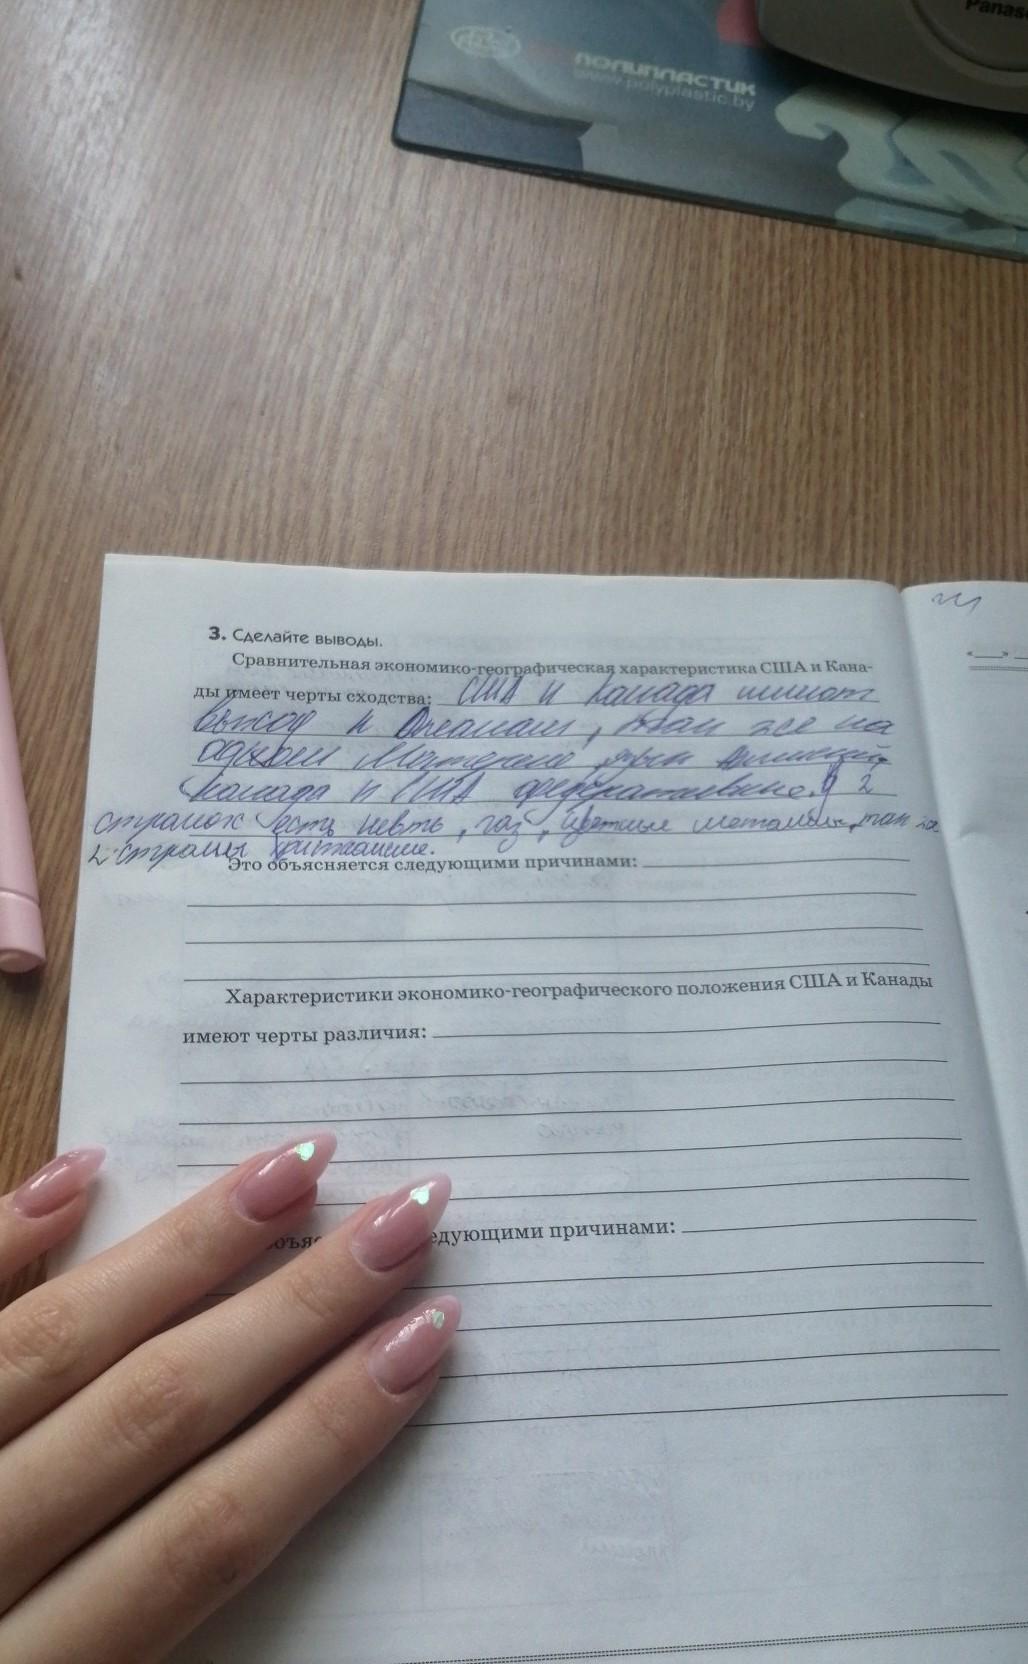 Panas
ПОЛИПЛАСТИК
www.polyplastic.by
3. Сделайте выводы.
Сравнительная экономико-географическая характеристика США и Кана-
ды имеет черты сходства: США и Канада имеют
выход к Океанам, так же на
одном
Канада и США федеративные. У 2
странах есть невть, газ, цветные металы, так же
2 страны
Это объясняется следующими причинами:
Характеристики экономико-географического положения США и Канады
имеют черты различия:
объяс едующими причинами: